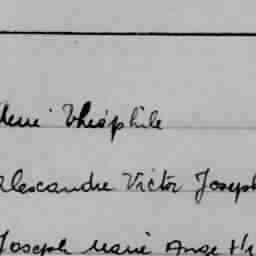 Théophile
Alexandre Victor Joseph
Joseph Marie Ange